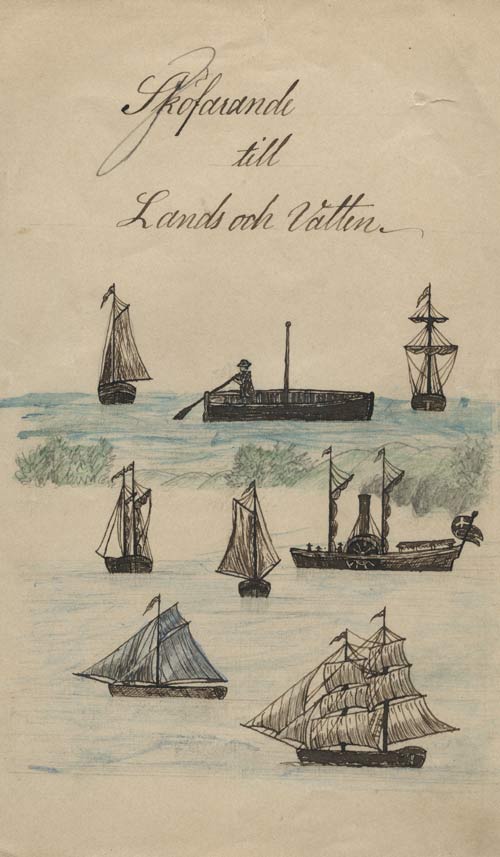 Sköfarande
till
Lands och Vatten.